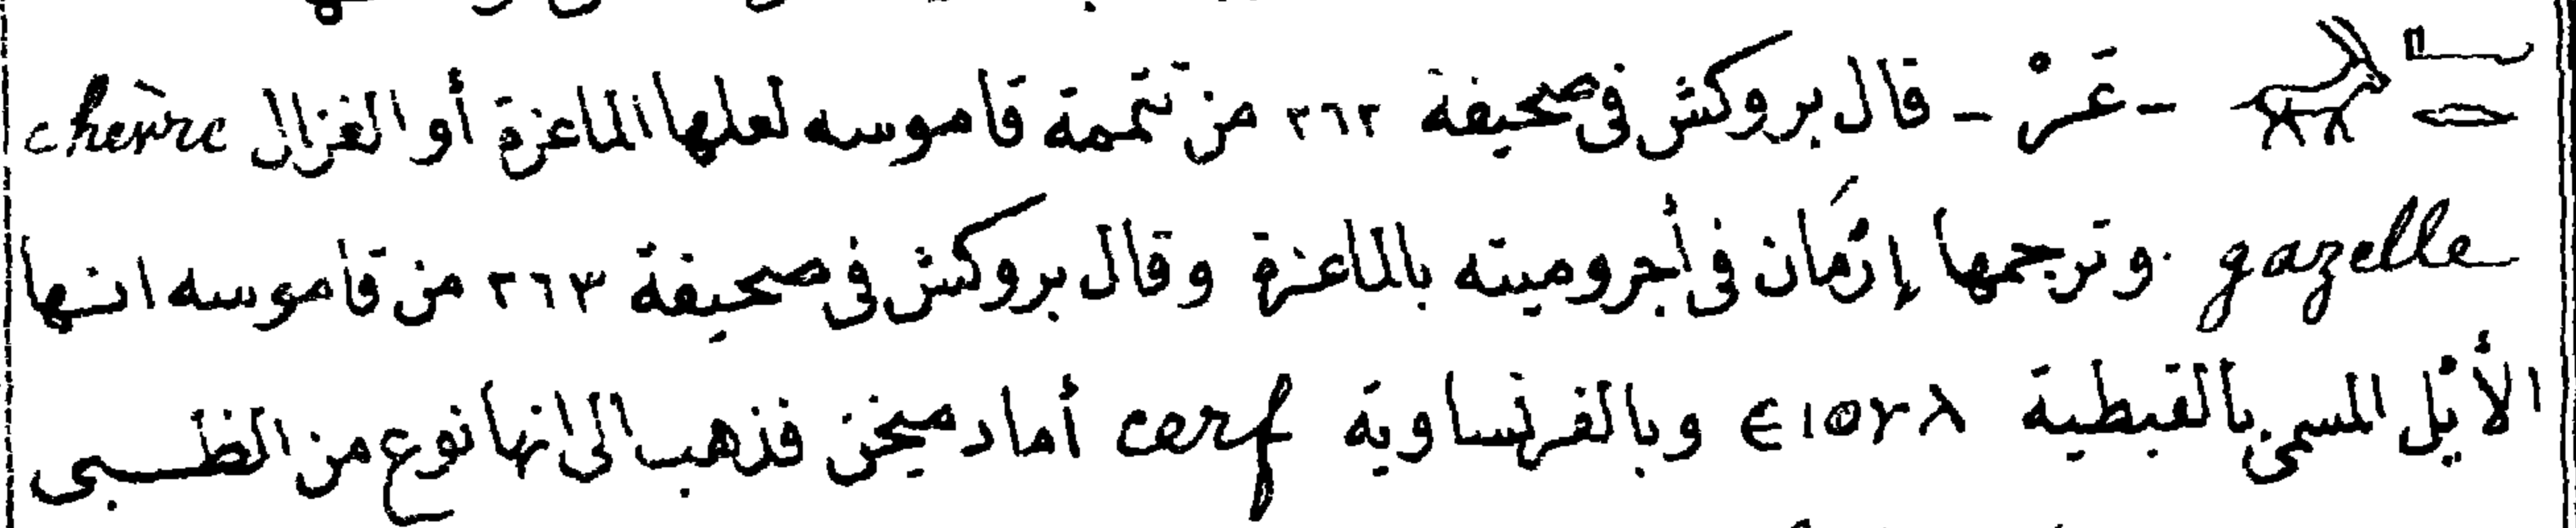 - عَـرْ - قال بروكش فى صحيفة ٢٦٢ من تتمة قاموسه لعلها الماعزة أو الغزال chèvre
gazelle . وترجمها إرْمَان فى أجروميته بالماعزة وقال بروكش فى صحيفة ٢٦٣ من قاموسه انها
الأيّل المسمى بالقبطية ⲉⲓⲟⲩⲗ وبالفرنساوية cerf أماد ميخن فذهب الى انها نوع من الظـبى